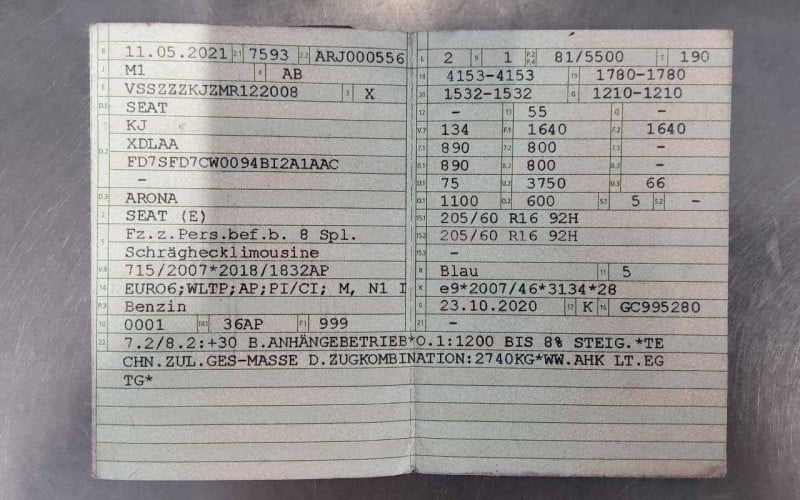 B 11.05.2021 2.1 7593 2.2 ARJ000556
J M1 4 AB
E VSSZZZKJZMR122008 3 X
D.1 SEAT
D.2 KJ
XDLAA
FD7SFD7CW0094BI2A1AAC
-
D.3 ARONA
2 SEAT (E)
5 Fz.z.Pers.bef.b. 8 Spl.
Schräghecklimousine
V.9 715/2007*2018/1832AP
14 EURO6;WLTP;AP;PI/CI; M, N1 I
P.3 Benzin
10 0001 14.1 36AP P.1 999
22 7.2/8.2:+30 B.ANHÄNGEBETRIEB*O.1:1200 BIS 8% STEIG.*TE
CHN.ZUL.GES-MASSE D.ZUGKOMBINATION:2740KG*WW.AHK LT.EG
TG*
L 2 9 1 P.2 P.4 81/5500 T 190
18 4153-4153 19 1780-1780
20 1532-1532 G 1210-1210
12 - 13 55 Q -
V.7 134 F.1 1640 F.2 1640
7.1 890 7.2 800 7.3 -
8.1 890 8.2 800 8.3 -
U.1 75 U.2 3750 U.3 66
O.1 1100 O.2 600 S.1 5 S.2 -
15.1 205/60 R16 92H
15.2 205/60 R16 92H
15.3 -
R Blau 11 5
K e9*2007/46*3134*28
6 23.10.2020 17 K 16 GC995280
21 -